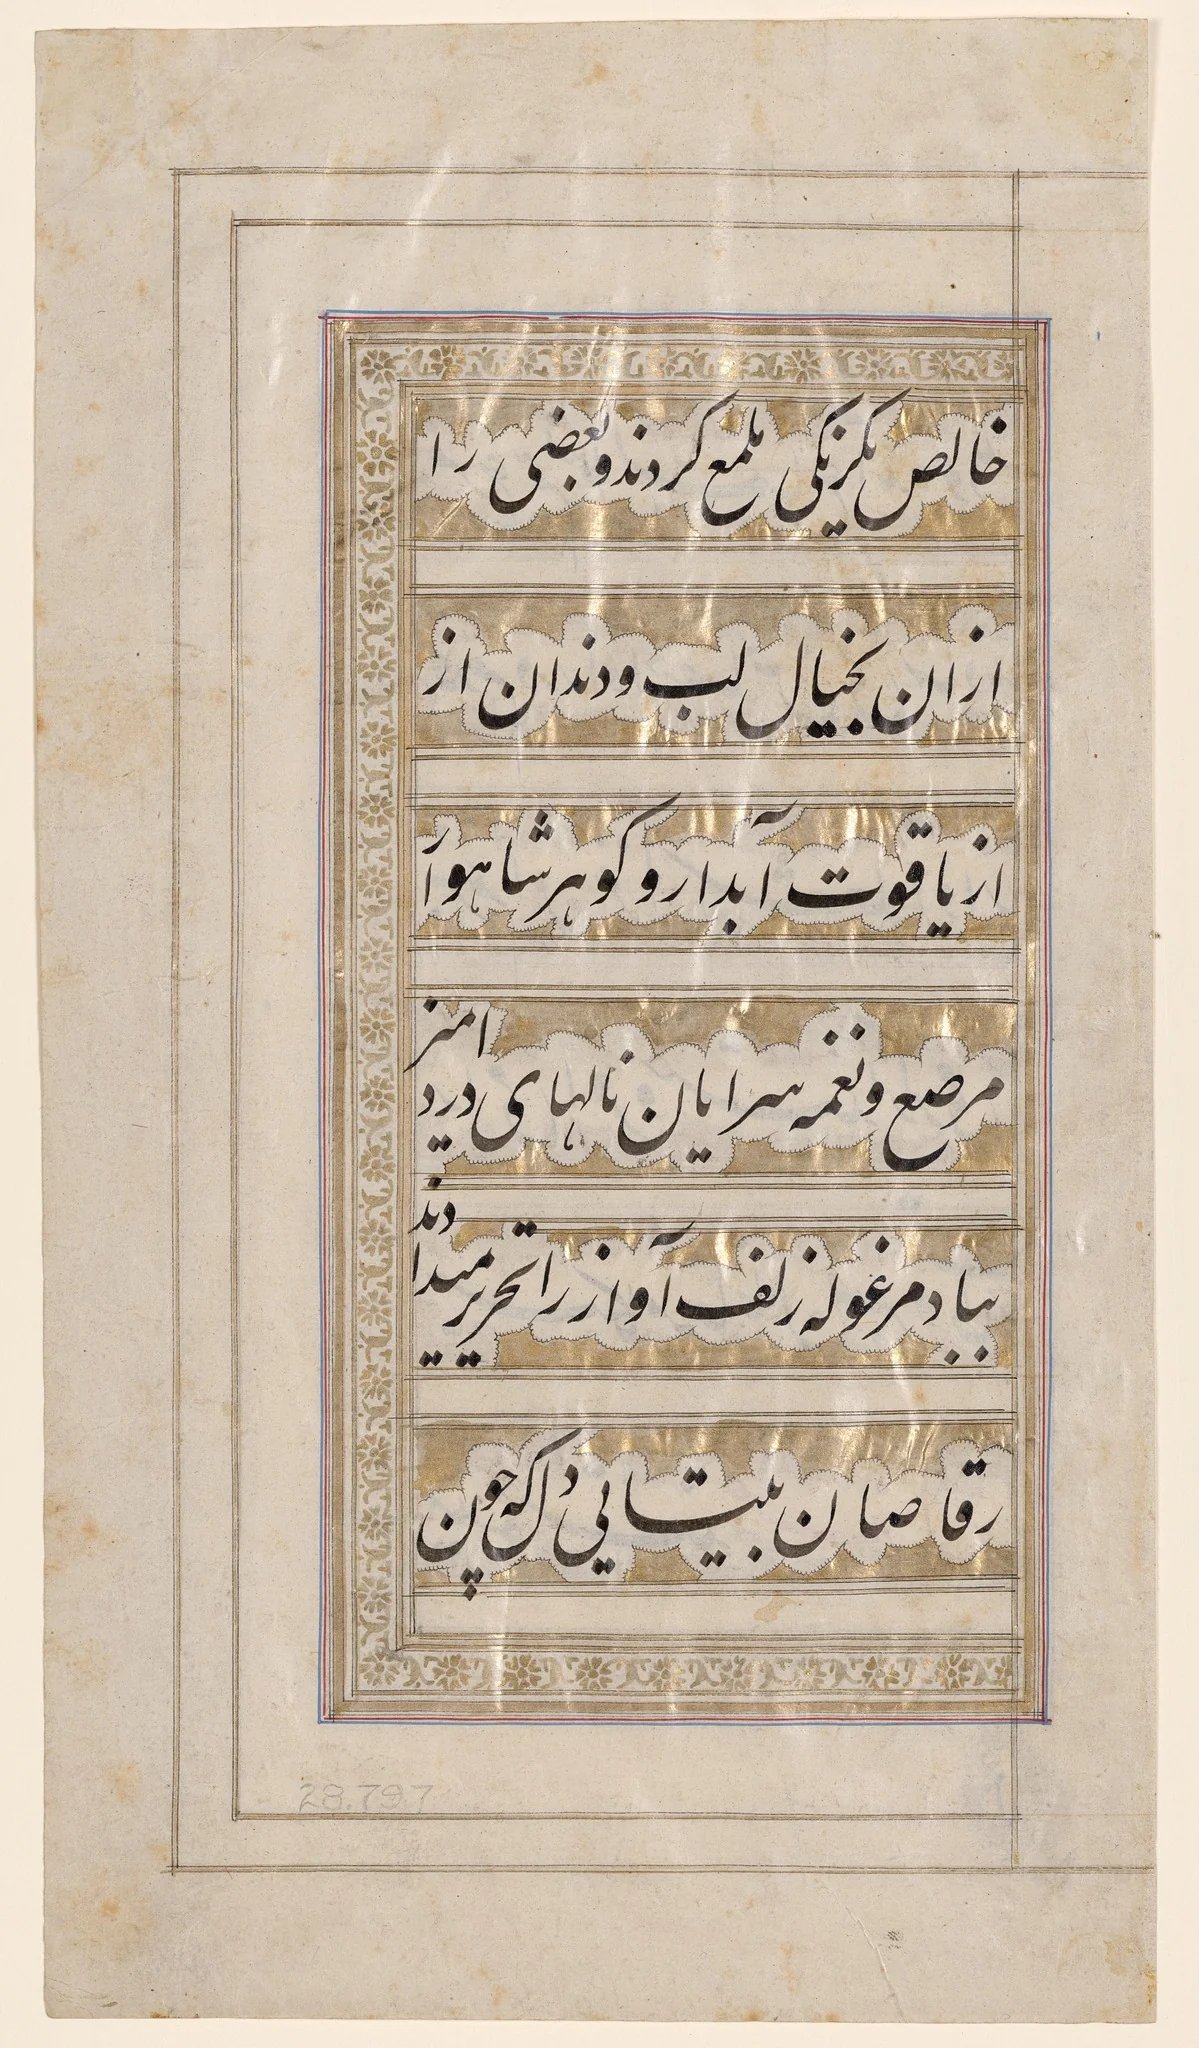 خالص یکرنکی ملمع کردند و بعضی را
ازان بخیال لب و دندان از
از یاقوت آبدار و کوهر شاهوار
مرصع و نغمه سرایان نالهای درد
امیز
بباد مرغوله زلف آواز را تحریر میدا
دند
رقاصان به بیتابی دل که چون
28.797